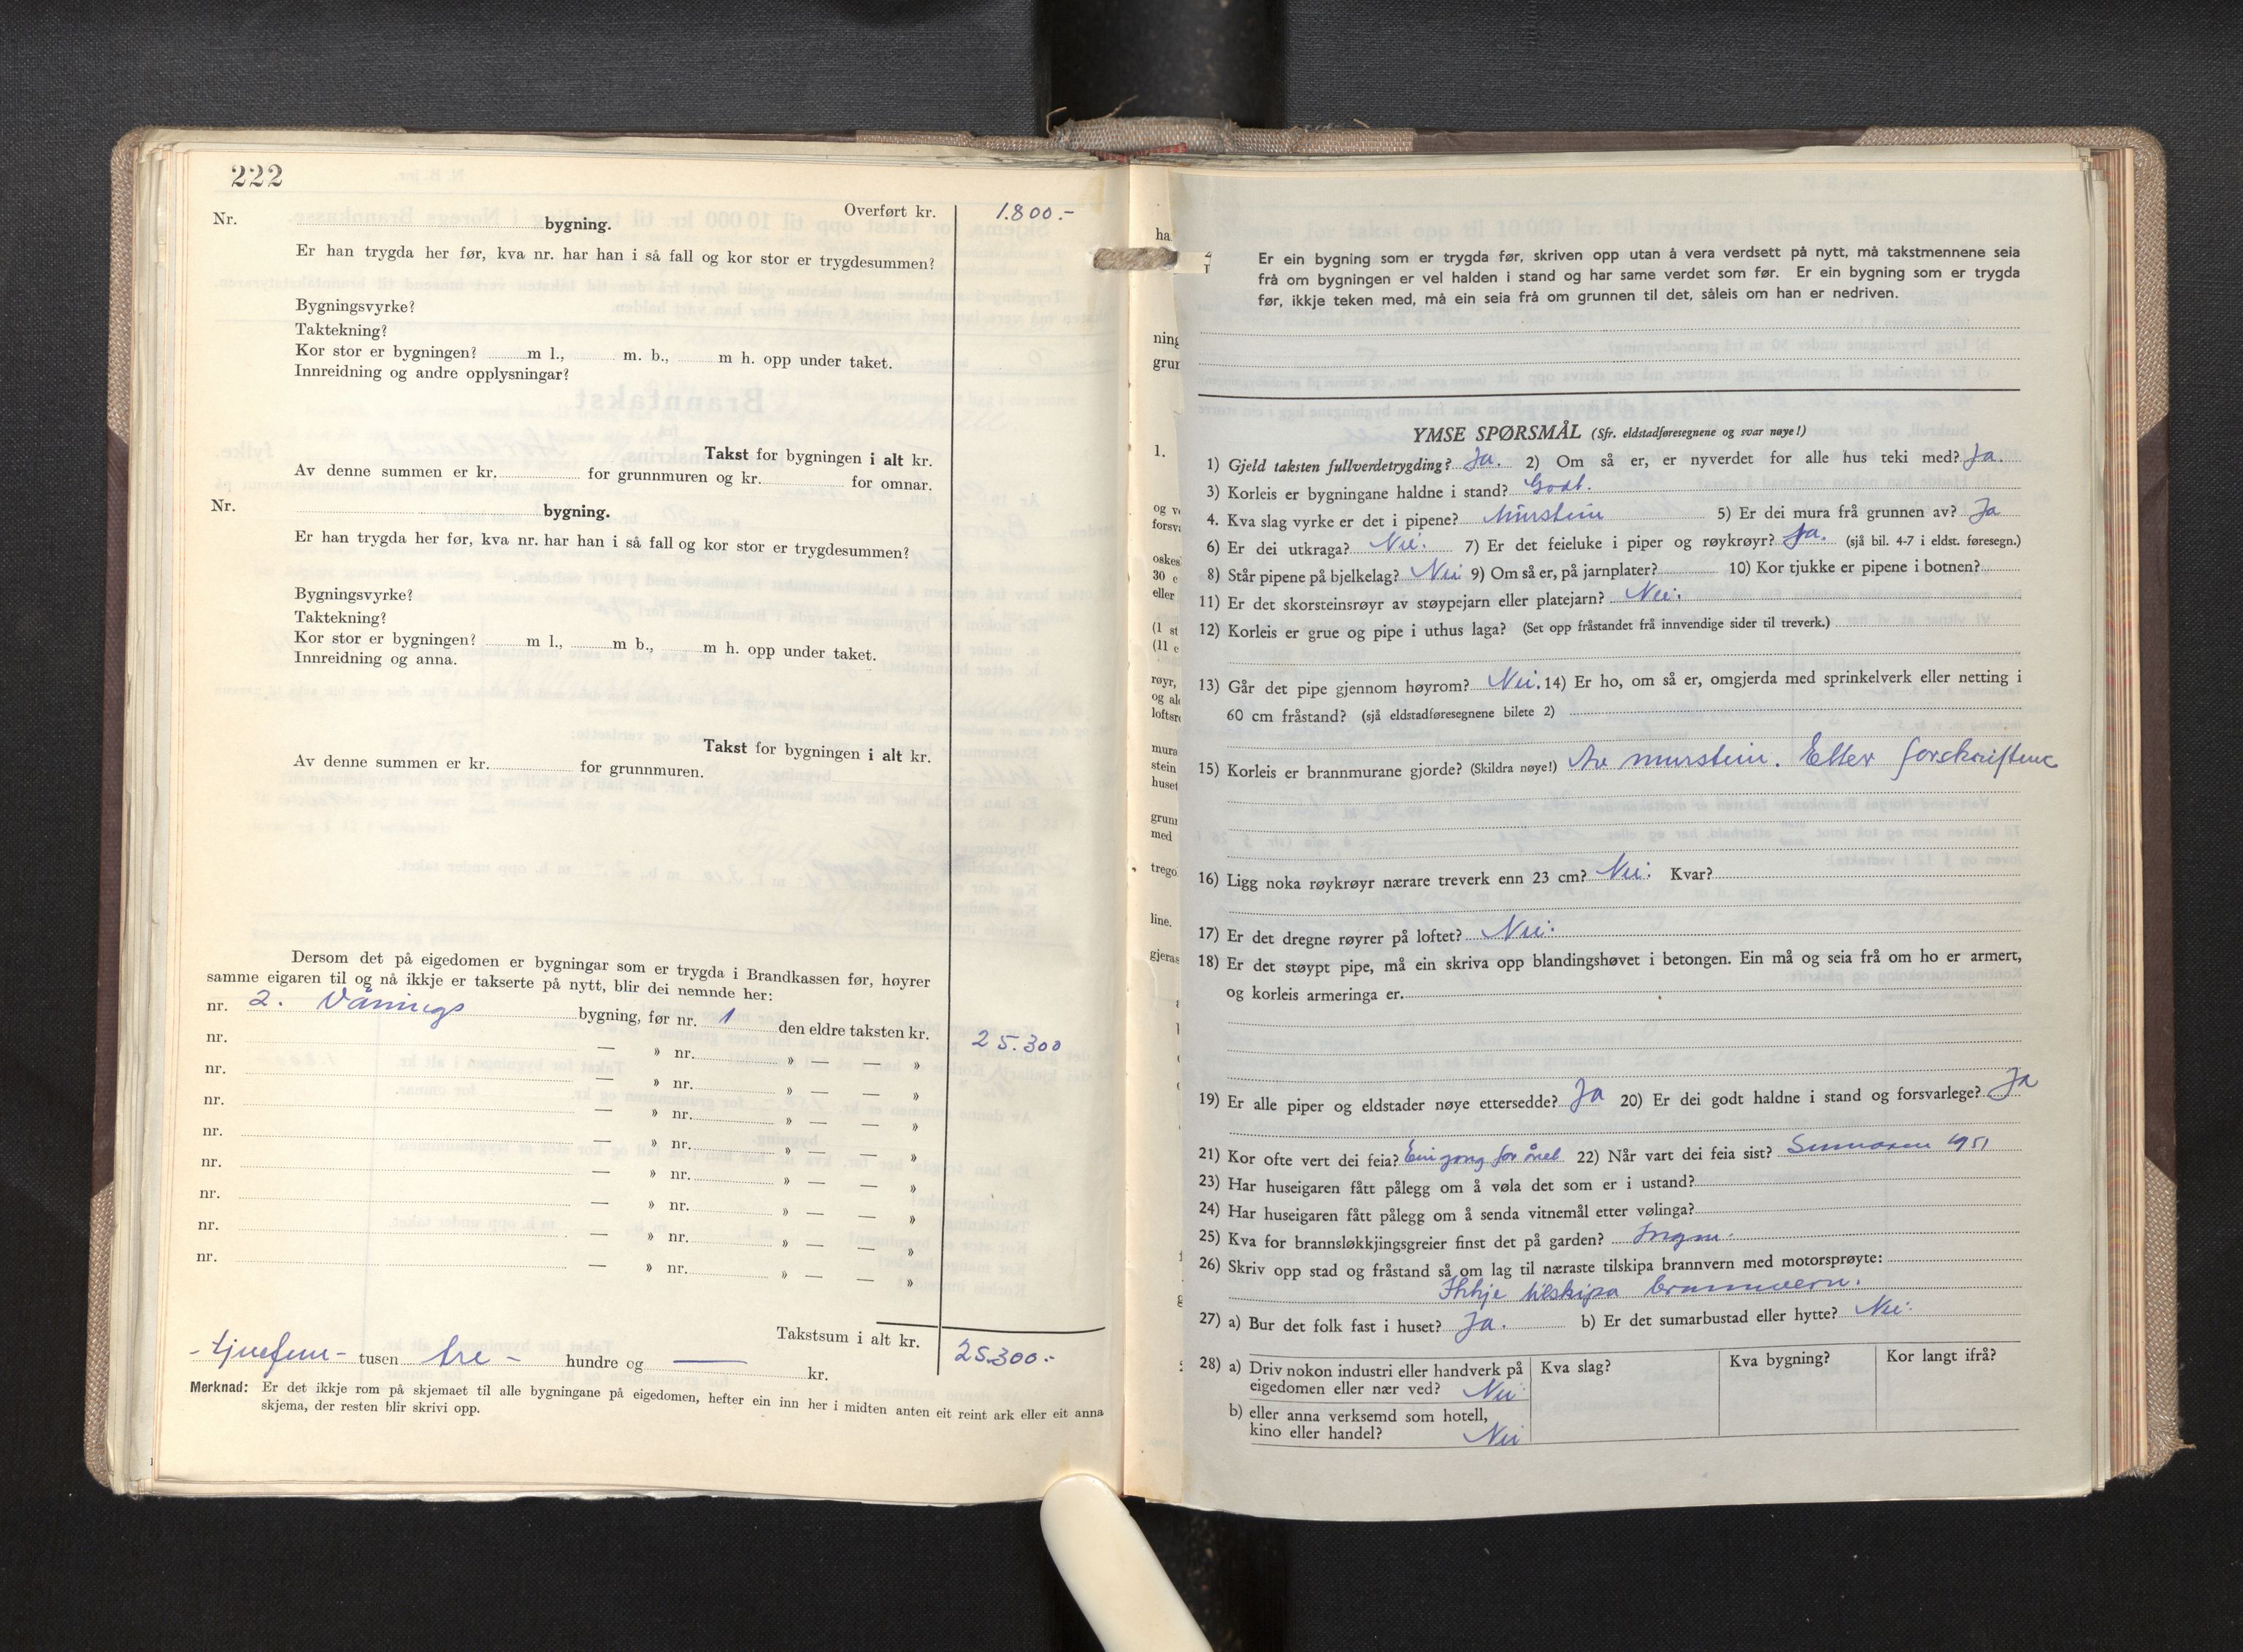 222
Overført kr. 1.800.-
Nr. bygning.
Er han trygda her før, kva nr. har han i så fall og kor stor er trygdesummen?
Bygningsvyrke?
Taktekning?
Kor stor er bygningen? m l., m. b., m h. opp under taket.
Innreidning og andre opplysningar?
Takst for bygningen i alt kr.
Av denne summen er kr. for grunnmuren og kr. for omnar.
Nr. bygning.
Er han trygda her før, kva nr. har han i så fall og kor stor er trygdesummen?
Bygningsvyrke?
Taktekning?
Kor stor er bygningen? m l., m b., m h. opp under taket.
Innreidning og anna.
Takst for bygningen i alt kr.
Av denne summen er kr. for grunnmuren.
Dersom det på eigedomen er bygningar som er trygda i Brandkassen før, høyrer
samme eigaren til og nå ikkje er takserte på nytt, blir dei nemnde her:
nr. 2. Vånings bygning, før nr. 1 den eldre taksten kr. 25.300
nr. — » nr. » — — »
nr. — » nr. » — — »
nr. — » nr. » — — »
nr. — » nr. » — — »
nr. — » nr. » — — »
nr. — » nr. » — — »
nr. — » nr. » — — »
nr. — » nr. » — — »
Takstsum i alt kr. 25.300.-
- tjuefem - tusen tre - hundre og — kr.
Merknad: Er det ikkje rom på skjemaet til alle bygningane på eigedomen, hefter ein inn her i midten anten eit reint ark eller eit anna
skjema, der resten blir skrivi opp.
Er ein bygning som er trygda før, skriven opp utan å vera verdsett på nytt, må takstmennene seia
frå om bygningen er vel halden i stand og har same verdet som før. Er ein bygning som er trygda
før, ikkje teken med, må ein seia frå om grunnen til det, såleis om han er nedriven.
YMSE SPØRSMÅL (Sfr. eldstadføresegnene og svar nøye!)
1) Gjeld taksten fullverdetrygding? Ja. 2) Om så er, er nyverdet for alle hus teki med? Ja.
3) Korleis er bygningane haldne i stand? Godt.
4. Kva slag vyrke er det i pipene? Murstein 5) Er dei mura frå grunnen av? Ja
6) Er dei utkraga? Nei. 7) Er det feieluke i piper og røykrøyr? Ja. (sjå bil. 4-7 i eldst. føresegn.)
8) Står pipene på bjelkelag? Nei 9) Om så er, på jarnplater? 10) Kor tjukke er pipene i botnen?
11) Er det skorsteinsrøyr av støypejarn eller platejarn? Nei.
12) Korleis er grue og pipe i uthus laga? (Set opp fråstandet frå innvendige sider til treverk.)
13) Går det pipe gjennom høyrom? Nei. 14) Er ho, om så er, omgjerda med sprinkelverk eller netting i
60 cm fråstand? (sjå eldstadføresegnene bilete 2)
15) Korleis er brannmurane gjorde? (Skildra nøye!) Av murstein. Etter forskriftene
16) Ligg noka røykrøyr nærare treverk enn 23 cm? Nei. Kvar?
17) Er det dregne røyrer på loftet? Nei.
18) Er det støypt pipe, må ein skriva opp blandingshøvet i betongen. Ein må og seia frå om ho er armert,
og korleis armeringa er.
19) Er alle piper og eldstader nøye ettersedde? Ja 20) Er dei godt haldne i stand og forsvarlege? Ja
21) Kor ofte vert dei feia? Ein gong for året 22) Når vart dei feia sist? Sumaren 1951
23) Har huseigaren fått pålegg om å vøla det som er i ustand?
24) Har huseigaren fått pålegg om å senda vitnemål etter vølinga?
25) Kva for brannsløkkjingsgreier finst det på garden? Ingen.
26) Skriv opp stad og fråstand så om lag til næraste tilskipa brannvern med motorsprøyte:
Ikkje tilskipa brannvern.
27) a) Bur det folk fast i huset? Ja. b) Er det sumarbustad eller hytte? Nei.
28) a) Driv nokon industri eller handverk på Kva slag? Kva bygning? Kor langt ifrå?
eigedomen eller nær ved? Nei
b) eller anna verksemd som hotell,
kino eller handel? Nei